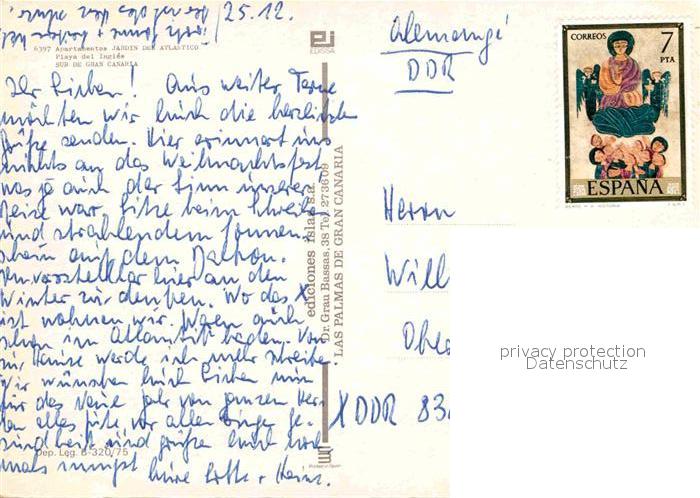 25.12.
6397 Apartamentos JARDIN DEL ATLANTICO
Playa del Inglés
SUR DE GRAN CANARIA
EDISSA
Ihr Lieben! Aus weiter Ferne
möchten wir Euch die herzlichsten
Grüße senden. Hier erinnert uns
nichts an das Weihnachtsfest
was ja auch der Sinn unserer
Reise war. Sitze beim Schreiben
und strahlendem Sonnen-
schein auf dem Balkon.
Unvorstellbar hier an den
Winter zu denken. Wo das X
ist wohnen wir. Waren auch
schon im Atlantik baden. Von
zu Hause werde ich mehr schreiben.
Wir wünschen Euch Lieben nun
für das Neue Jahr von ganzem Her-
zen alles Gute, vor allen Dingen Ge-
sundheit und grüßen Euch noch
mals Eure Lotte + Heinz.
Dep. Leg. B-320/75
Printed in Spain
ediciones islas s.a.
Dr. Grau Bassas, 38 Tel. 273609
LAS PALMAS DE GRAN CANARIA
Alemania
DDR
CORREOS 7
PTA
ESPAÑA
Herrn
Will
Ober
X DDR 83
privacy protection
Datenschutz